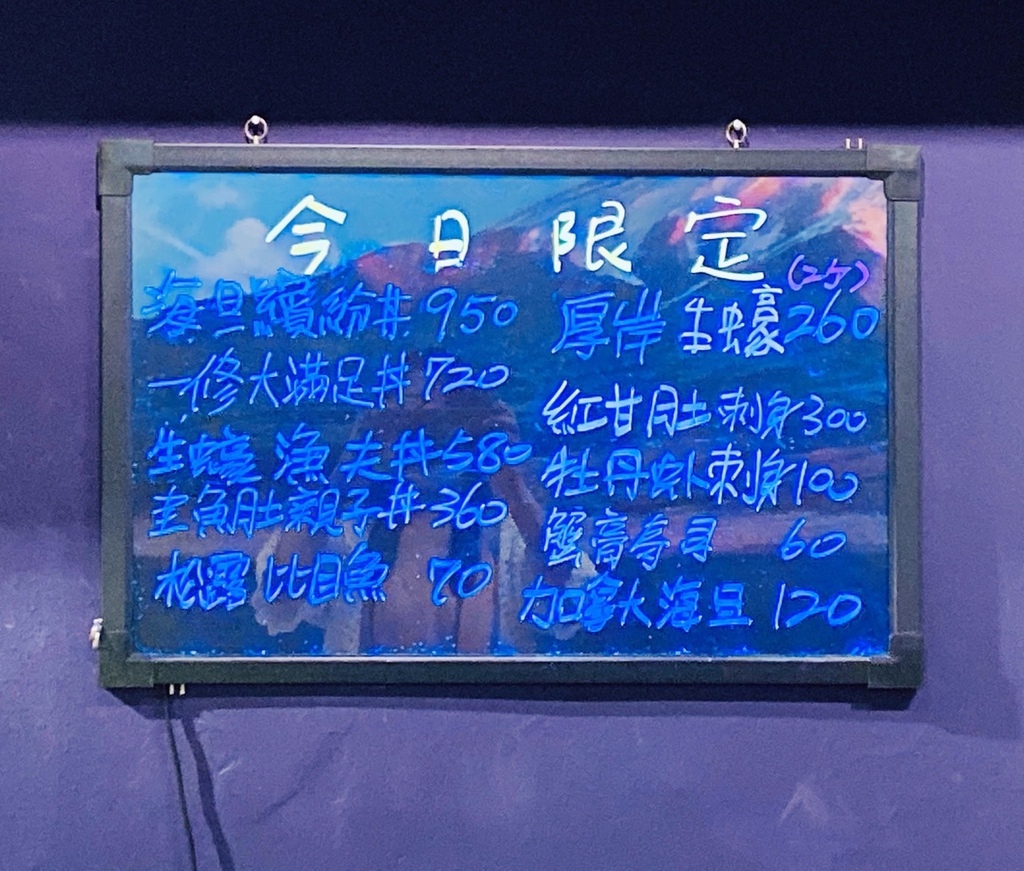 今日限定
海旦繽紛丼 950
一修大滿足丼 720
生蠔漁夫丼 580
圭魚肚親子丼 360
松露比目魚 70
(2ケ)
厚岸生蠔 260
紅甘肚刺身 300
牡丹蝦刺身 100
蟹膏寿司 60
加拿大海旦 120